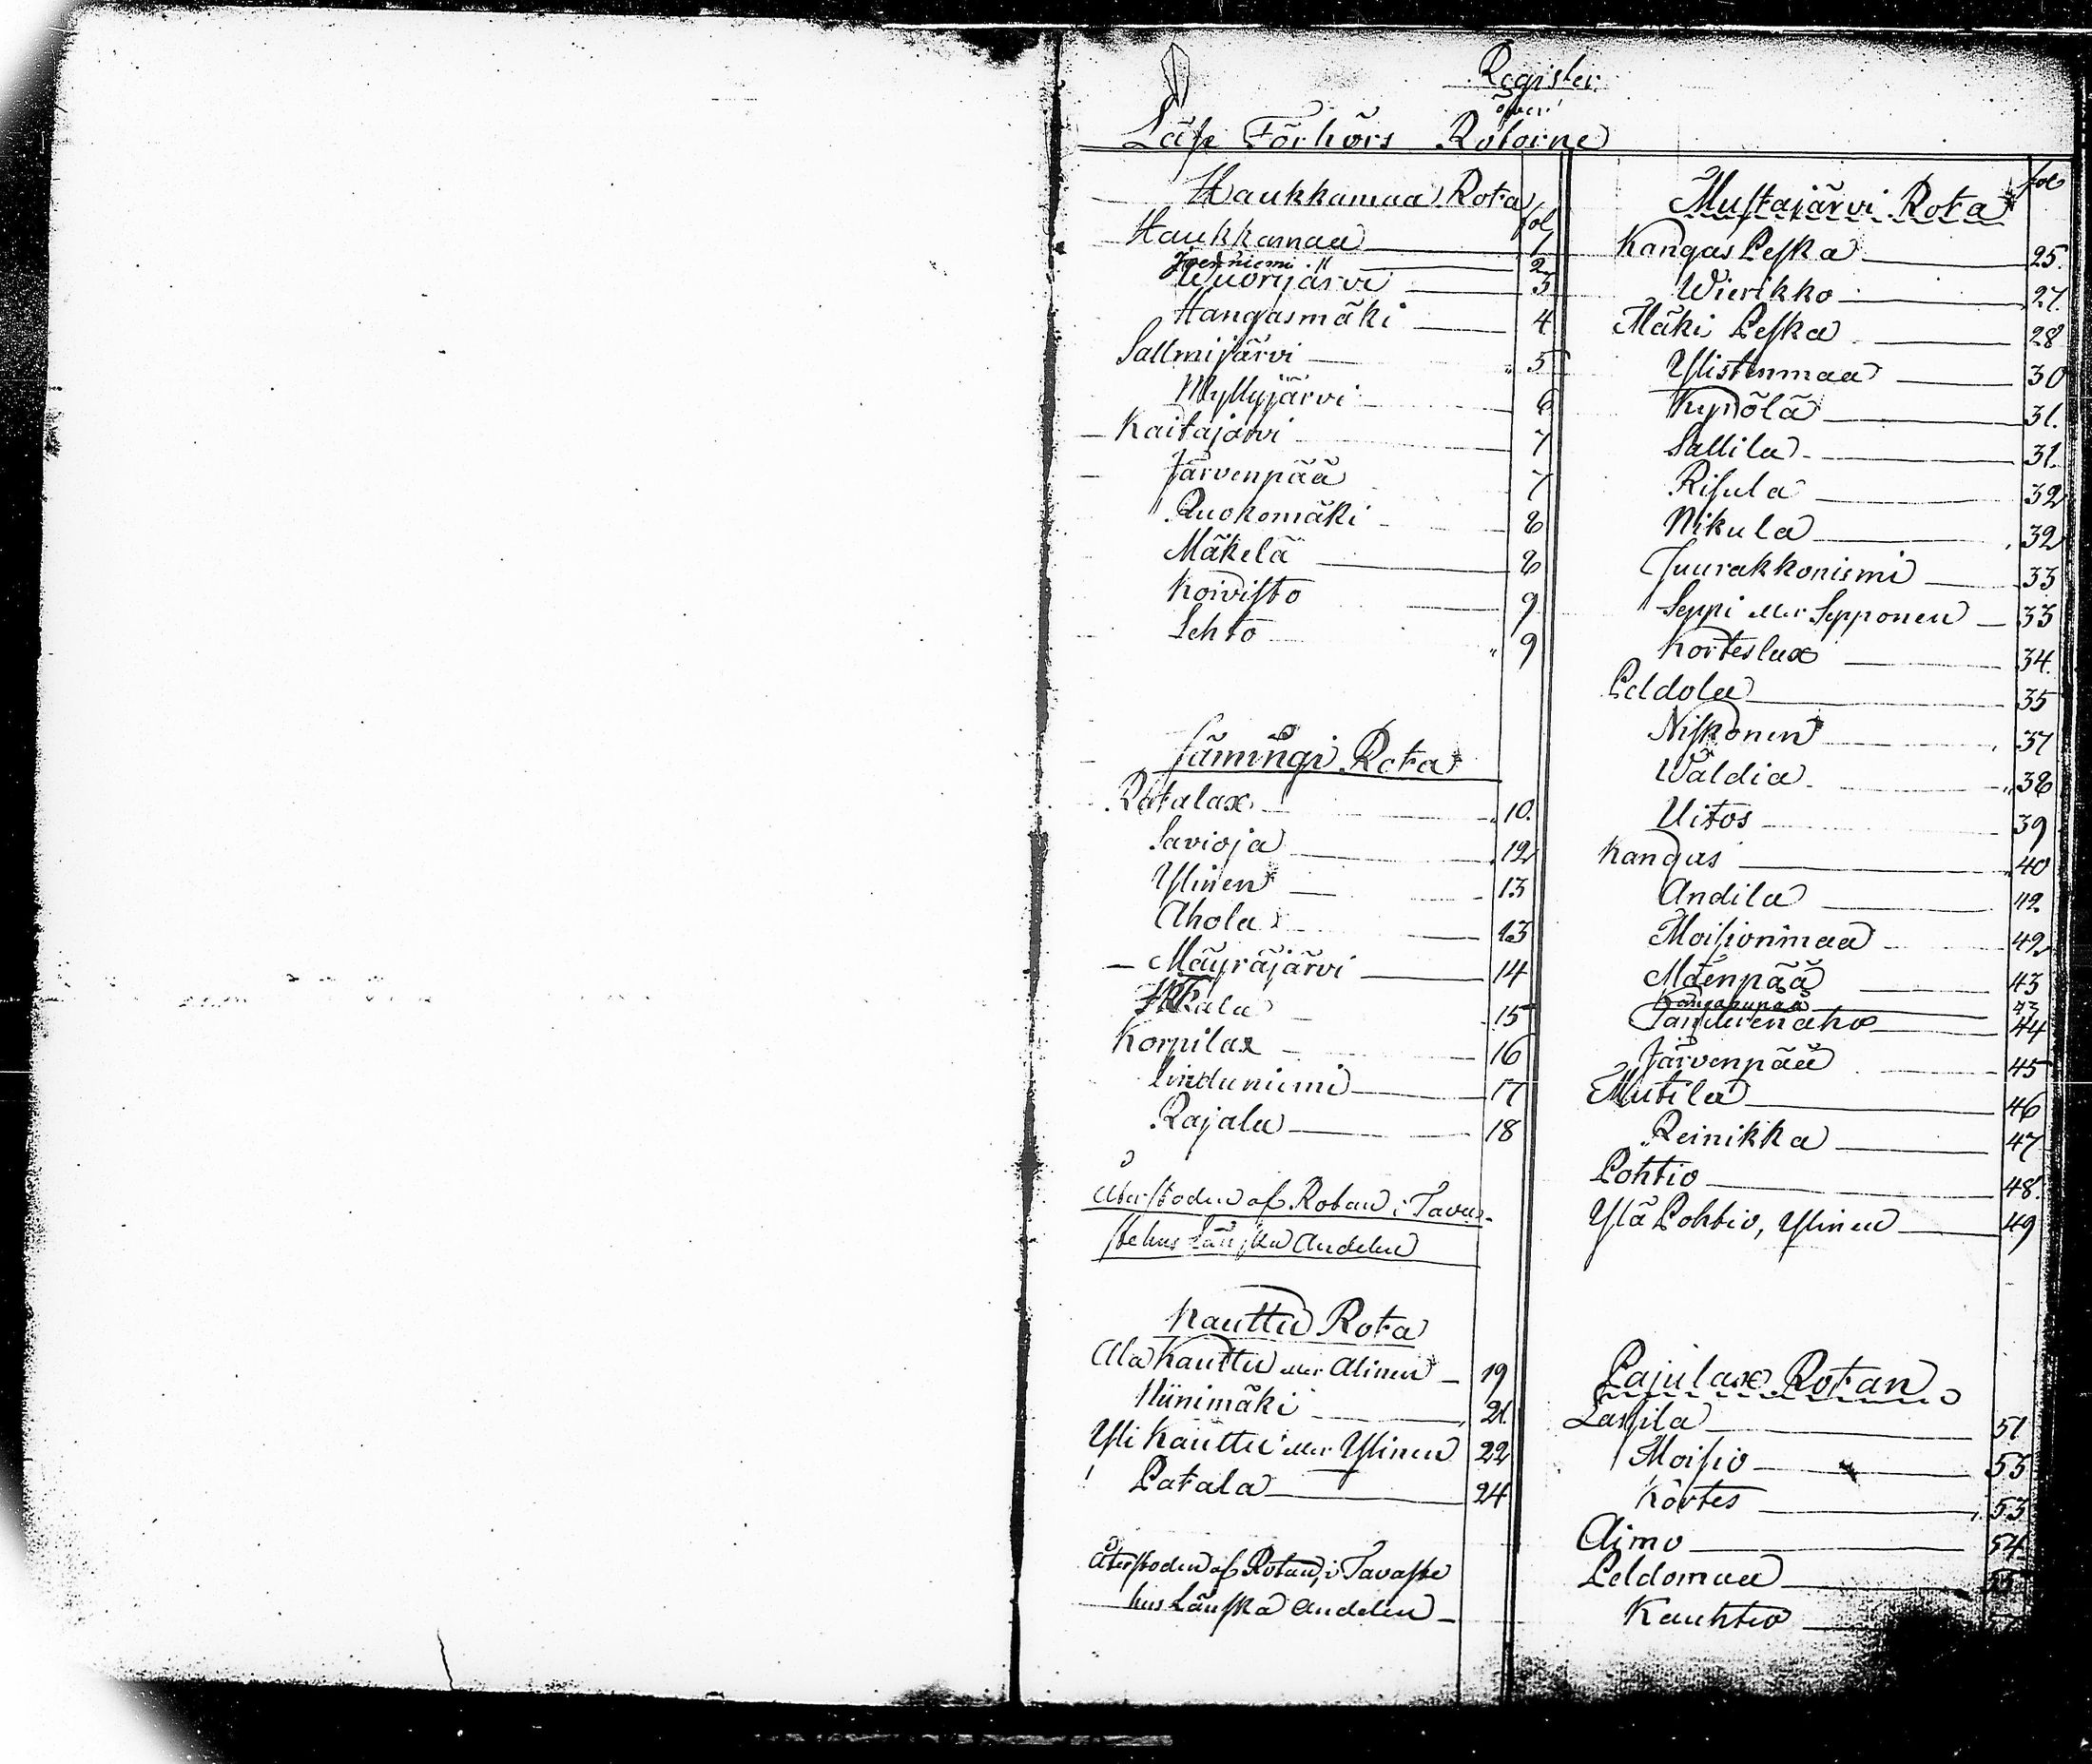 Register
öfver
Läse Förhörs Rotarne
Haukkamaa Rota
fol
Haukkamaa 1
Joenniemi 2
Wuorijärvi 3
Hangasmäki 4
Sallmijärvi 5
Myllyjärvi 6
Kaitajärvi 7
Järvenpää 7
Ruokomäki 8
Mäkelä 8
Koivisto 9
Lehto 9
Jämingi Rota
Ratalax 10.
Savioja 12
Ylinen 13
Ahola 13
Mäyräjärvi 14
15
Korpilax 16
Linduniemi 17
Rajala 18
Återstoden af Rotan i Tava-
stehus Länska Andelen
Kauttu Rota
Ala Kauttu eller Alinen 19
Niinimäki 21.
Yli Kauttu eller Ylinen 22
Patala 24
Återstoden af Rotan, i Tavaste
hus Länska Andelen
Mustajärvi Rota
fol
Kangas Peska 25.
Wierikko 27.
Mäki Peska 28
Ylistenmaa 30
Kynölä 31.
Sallila 31.
Risula 32
Nikula 32
Juurakkoniemi 33
Seppi eller Sepponen 33
Korteslax 34.
Peldola 35
Niskonen 37
Waldia 38
Uitos 39
Kangas 40
Andila 42
Moisionmaa 42
Mäenpää 43
43
44
Järvenpää 45
Mutila 46
Reinikka 47
Pohtio 48.
Ylä Pohtio, Ylinen 49
Pajulax Rotan
Lassila 51
Moisio 53
Kortes 53
Aimo 54
Peldomaa 55
Kauhtio